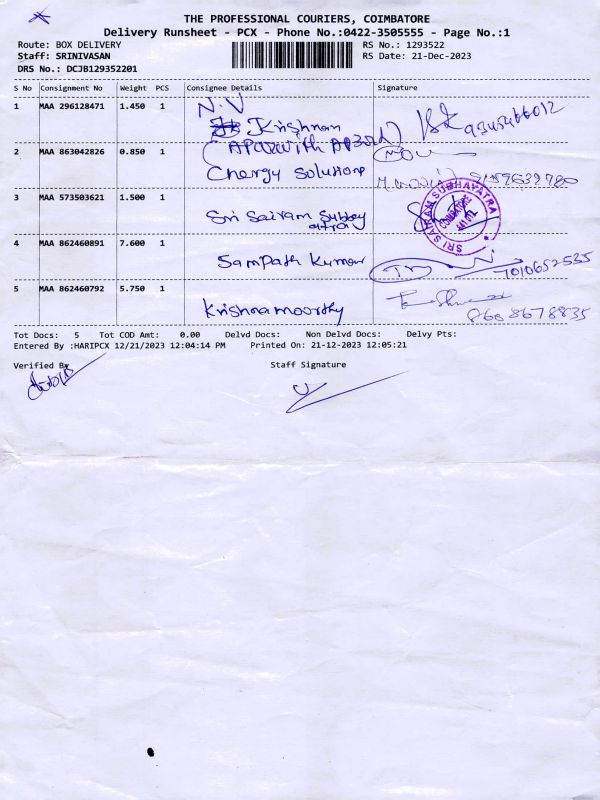 THE PROFESSIONAL COURIERS, COIMBATORE
Delivery Runsheet - PCX - Phone No.:0422-3505555 - Page No.:1
Route: BOX DELIVERY
RS No.: 1293522
Staff: SRINIVASAN
RS Date: 21-Dec-2023
DRS No.: DCJB129352201
S No Consignment No Weight PCS Consignee Details Signature
1 MAA 296128471 1.450 1
N.V
Krishnan
2 MAA 863042826 0.850 1
Energy Solutions
3 MAA 573503621 1.500 1
Sri Sairam Subhay
SRI SAIRAM SUBHAYATRA
COIMBATORE
641 012
4 MAA 862460891 7.600 1
Sampath Kumar
7010652535
5 MAA 862460792 5.750 1
Krishnamoorthy
8668678835
Tot Docs: 5 Tot COD Amt: 0.00 Delvd Docs: Non Delvd Docs: Delvy Pts:
Entered By :HARIPCX 12/21/2023 12:04:14 PM Printed On: 21-12-2023 12:05:21
Verified By
Staff Signature